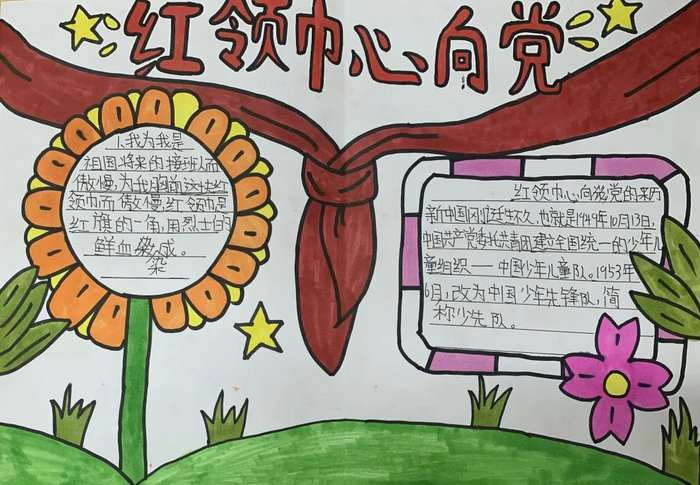 红领巾心向党
1.我为我是
祖国将来的接班人而
傲慢,为我胸前这块红
领巾而傲慢,红领巾是
红旗的一角,用烈士的
鲜血染成。
染
红领巾心向党党的来历
新中国刚建立不久,也就是1949年10月13日,
中国共产党委托共青团建立全国统一的少年儿
童组织——中国少年儿童队。1953年
6月,改为中国少年先锋队,简
称少先队。